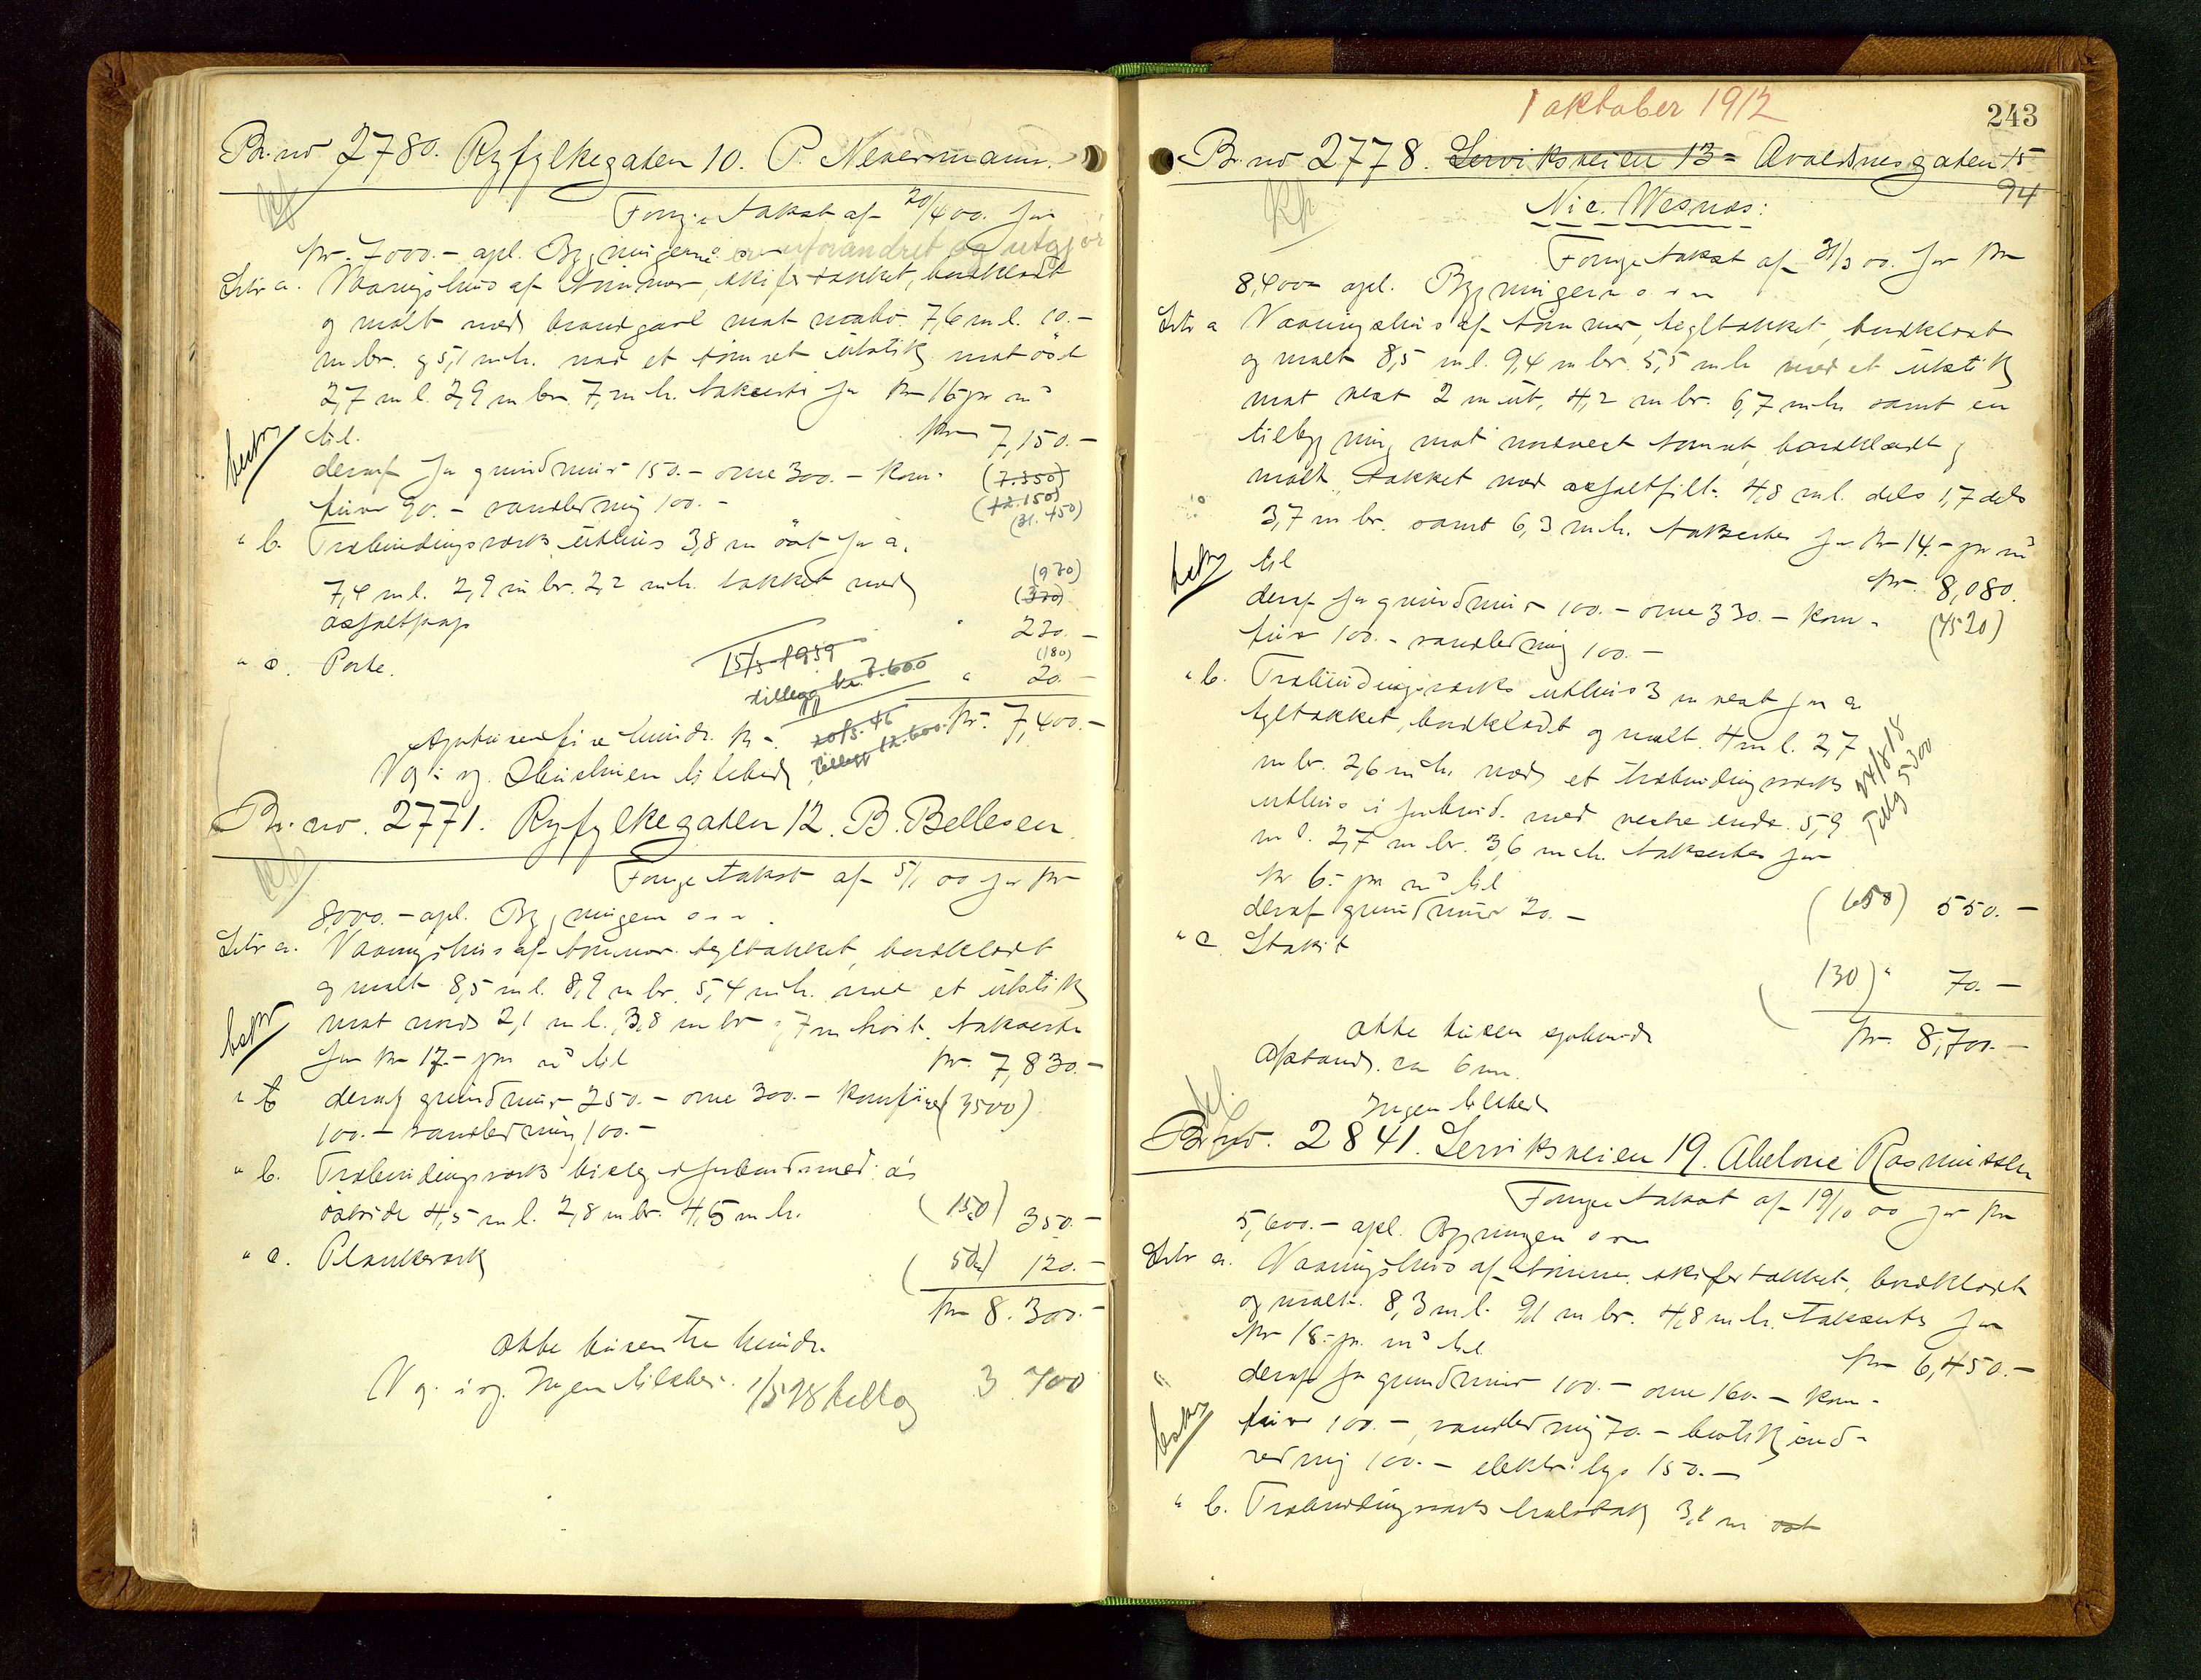 Br. no 2780. Ryfylkegaten 10. P. Nevermann.
Forrige takst af 20/4 00. for
kr. 7000.- opl. Bygningerne er uforandret og utgjør
Litr a. Vaaningshus af tømmer, skifertækket, bordklædt
og malt med brandgavl mot nabo. 7,6 m l. 10.-
m br. og 5,1 m h. med et tømret utstik mot øst
2,7 m l. 2,9 m br. 7, m h. takseres for kr 16 pr m³
til. kr 7,150.-
deraf for grundmur 150.- ovne 300.- kom- (7.350)
fur 90.- vandledning 100.- (12.150)
(31.450)
" b. Træbindingsværks uthus 3,8 m øst for a.
7,4 m l. 2,9 m br. 2,2 m h. tækket med (970)
asfaltpap (370)
" 230.-
" c. Porte. (180)
" 20.-
15/3 1939
tillegg kr. 7.600
kr. 7,400.-
20/3.46
Tillegg 12.600.
Syvtusenfirehundr. kr.
V g. i sg. tilsted
Br. no. 2771. Ryfylkegaten 12. B. Bellesen
Forrige takst af 5/1 00 for kr
8000.- opl. Bygningerne
Litr a. Vaaningshus af tømmer. tegltækket, bordklædt
og malt 8,5 m l. 8,9 m br. 5,4 m h. med et utstik
mot nord 2,1 m l. 3,8 m br og 7 m høit. takseres
for kr 17.- pr m³ til kr. 7,830.-
deraf grundmur 250.- ovne 300.- komfur (3500)
100.- vandledning 100.-
" b. Træbindingsværks bislag i forbind. med a's
østside 4,5 m l. 2,8 m br. 4,5 m h. (150) 350.-
" c. Plankeværk (50) 120.-
kr 8.300.-
otte tusen tre hundr.
V g. i sg. Ingen tilsted. 1/5 28 tillæg 3 700
1 oktober 1912
243
Br. no 2778. Serviksveien 13 = Avaldsnesgaten 15
94
Nic. Wesnes:
Forrige takst af 31/3 00. for kr
8,400 opl. Bygningerne
Litr a Vaaningshus af tømmer, tegltækket, bordklædt
og malt 8,5 m l. 9,4 m br. 5,5 m h med et utstik
mot vest 2 m ut, 4,2 m br. 6,7 m h. samt en
tilbygning mot nordvest tømret, bordklædt og
malt tækket med asfaltfilt. 4,8 m l. dels 1,7 dels
3,7 m br. samt 6,3 m h. takseres for kr 14.- pr m³
til kr. 8,080.
deraf for grundmur 100.- ovne 330.- kom- (4520)
fur 100.- vandledning 100.-
" b. Træbindingsværks uthus 3 m vest for a
tegltækket, bordklædt og malt. 4 m l. 2,7
m br. 2,6 m h. med et træbindingsværks
uthus i forbind. med vestre ende. 5,9
m l. 2,7 m br. 3,6 m h. takseres for
kr 6.- pr m³ til
deraf grundmur 20.- (650) 550.-
24/8 18
Tillg 5300
" c Stakit (130) " 70.-
kr. 8,700.-
otte tusen syvhundr
Afstand. ca 6 m.
Ingen tilsted
Br. no. 2841. Serviksveien 19. Abelone Rasmussen
Forrige takst af 19/10 00 for kr
5,600.- opl. Bygningen
Litr a. Vaaningshus af tømmer. skifertækket, bordklædt
og malt. 8,3 m l. 9,1 m br. 4,8 m h. takseres for
kr 18.- pr. m³ til kr 6,450.-
deraf for grundmur 100.- ovne 160.- kom-
fur 100.-, vandledning 70.- butikind-
redning 100.- elektr. lys 150.-
" b. Træbindingsværks halvtak 3,8 m øst